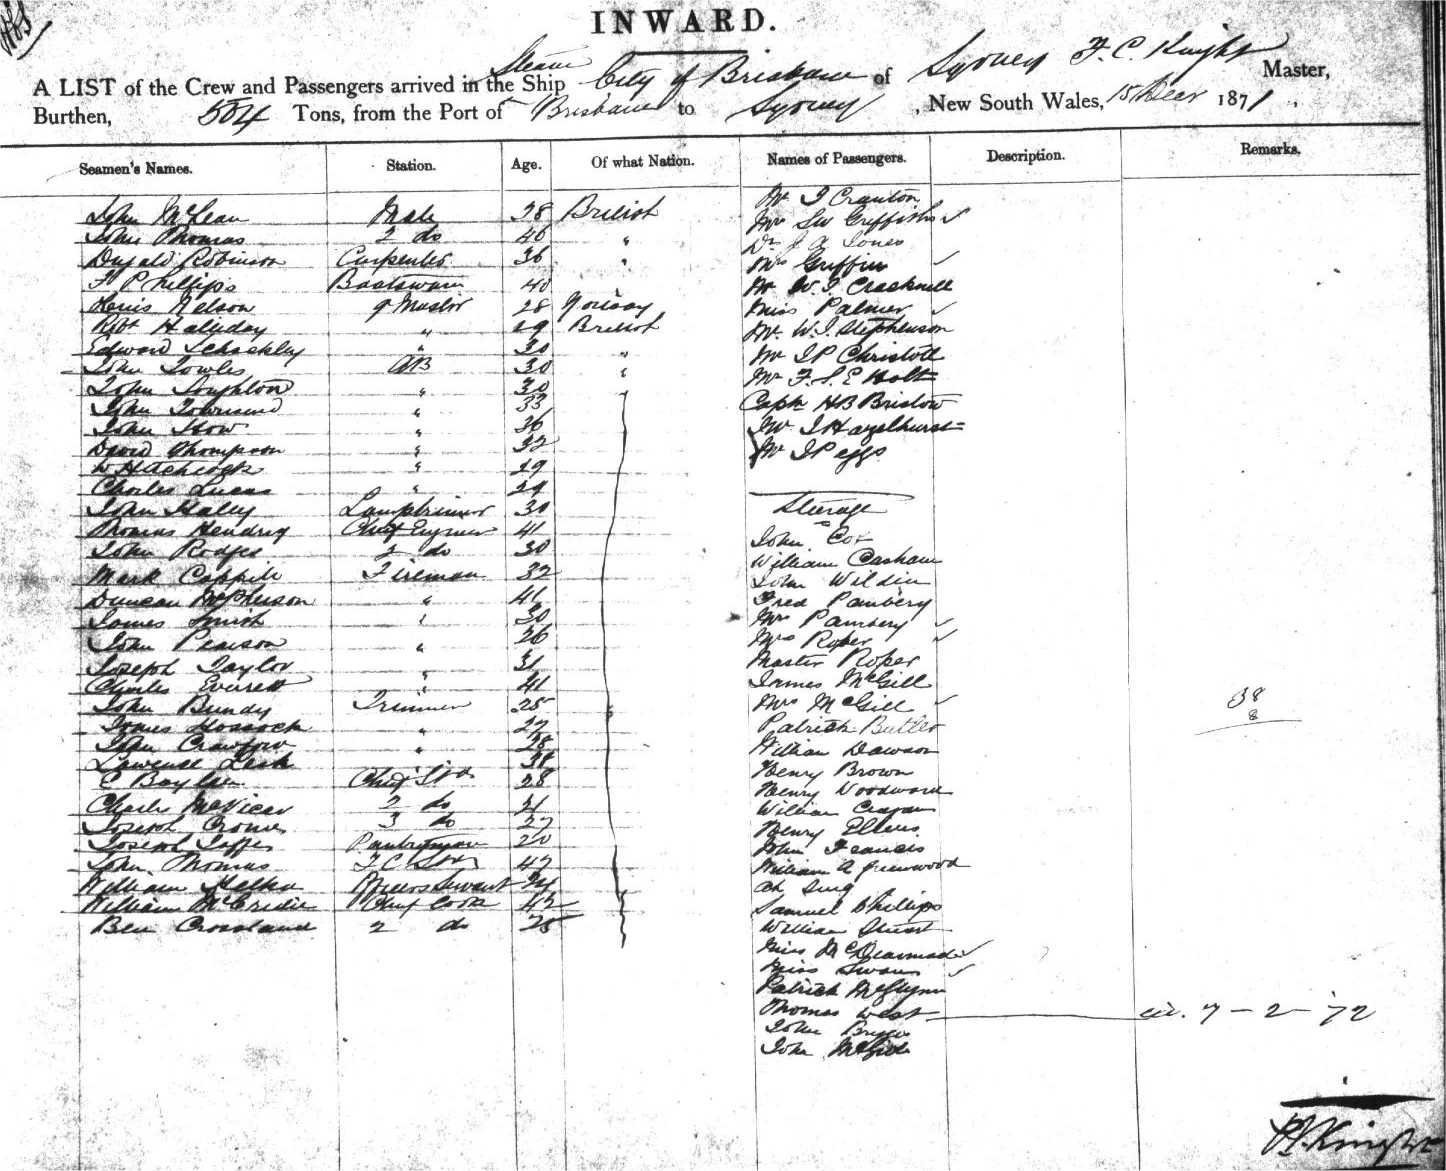 INWARD.
A LIST of the Crew and Passengers arrived in the Steam Ship City of Brisbane of Sydney F. C. Knight Master,
Burthen, 504 Tons, from the Port of Brisbane to Sydney, New South Wales, 15 Decr 1871.
Seamen's Names. Station. Age. Of what Nation. Names of Passengers. Description. Remarks.
John McLean Mate 28 British
John Thomas 2 do 40 "
Dugald Robinson Carpenter 36 "
F P Phillips Boatswain 40
Nelson Q Master 28 Norway
Robt Halliday " 29 British
Edward " 30 "
John Towles AB 30 "
John Loughton " 30 "
John Townsend " 33
John How " 36
David Thompson " 32
W Hitchcock " 29
Charles Lucas " 29
John Haley Lamptrimmer 30
Thomas Chief Engineer 41
John Rodges 2 do 30
Mark Fireman 32
Duncan McPherson " 41
James Smith " 30
John Pearson " 26
Joseph Taylor 31
Charles Everett " 41
John Bundy Trimmer 25
James Hossock " 27
John Crawford " 28
Lawrence 38
E Chief Std 28
Charles McVicar 2 do 21
Joseph 3 do 27
Joseph Pantryman 20
John Thomas F C Std 42
William Officers Servant 24
William McCridie Chief Cook 42
Ben Crossland 2 do 25
Mr J Cranton
Mr SW Griffiths
Dr J A Jones
Mrs Griffin
Mr W. J. Cracknell
Miss Palmer
Mr. W. J. Stephenson
Mr J P
Mr F. S. E Holt
Capt H B Bristow
Mr J Hazelhurst
Mr J Peggs
Steerage
John Cox
William Casham
John Wildin
Fred Panbery
Mrs Panbery
Mrs Roper
Master Roper
James McGill
Mrs McGill
Patrick Butler
William Dawson
Henry Brown
Henry Woodward
William
Henry Ellers
John Francis
William A Greenwood
Ah Sing
Samuel Phillips
William Stuart
Miss
Miss Swan
Patrick McGlynn
Thomas West 7-2-72
John Briggs
John
38
8
Knight